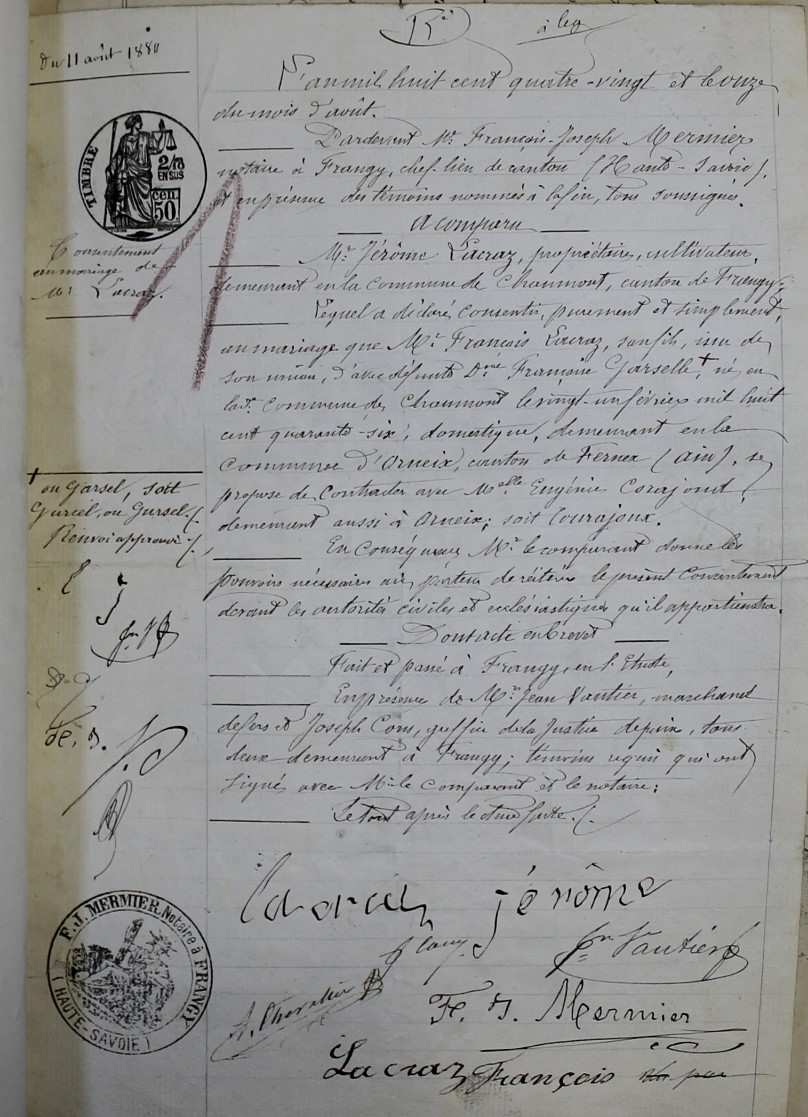 Ré
à leg
Du 11 août 1880
L'an mil huit cent quatre-vingt et le onze
du mois d'août.
Pardevant Me François-Joseph Mermier
notaire à Frangy, chef-lieu de canton (Haute-Savoie),
et en présence des témoins nommés à la fin, tous soussignés.
A comparu
Mr Jérôme Lacraz, propriétaire, cultivateur,
demeurant en la commune de Chaumont, canton de Frangy;
Lequel a déclaré consentir, purement et simplement,
au mariage que Mr François Lacraz, son fils, issu de
son union, d'avec défunte Dme Françoise Garselle+, né en
ladte commune de Chaumont le vingt-un février mil huit
cent quarante-six, domestique, demeurant en la
commune d'Orneix, canton de Fernex (Ain), se
propose de contracter avec Melle Eugénie Corajond,
demeurant aussi à Orneix; soit Courajoux.
En conséquence Mr le comparant donne les
pouvoirs nécessaires au porteur de réitérer le présent consentement
devant les autorités civiles et ecclésiastiques qu'il appartiendra.
Dont acte en brevet
Fait et passé à Frangy, en l'Etude,
En présence de Mrs Jean Vautier, marchand
de fers et Joseph Cons, greffier de la Justice de paix, tous
deux demeurant à Frangy; témoins requis qui ont
signé avec Mr le comparant et le notaire;
Le tout après lecture faite./.
TIMBRE
2/10
EN SUS
50 cen
Consentement
au mariage de
Mr Lacraz.
+
ou Garsel, soit
Garcel, ou Gursel./.
Renvoi approuvé./.
Jérôme
Jn Vautier
A. Chevalier
F. J. Mermier
Lacraz François
F. J. MERMIER, Notaire à FRANGY
(HAUTE-SAVOIE)